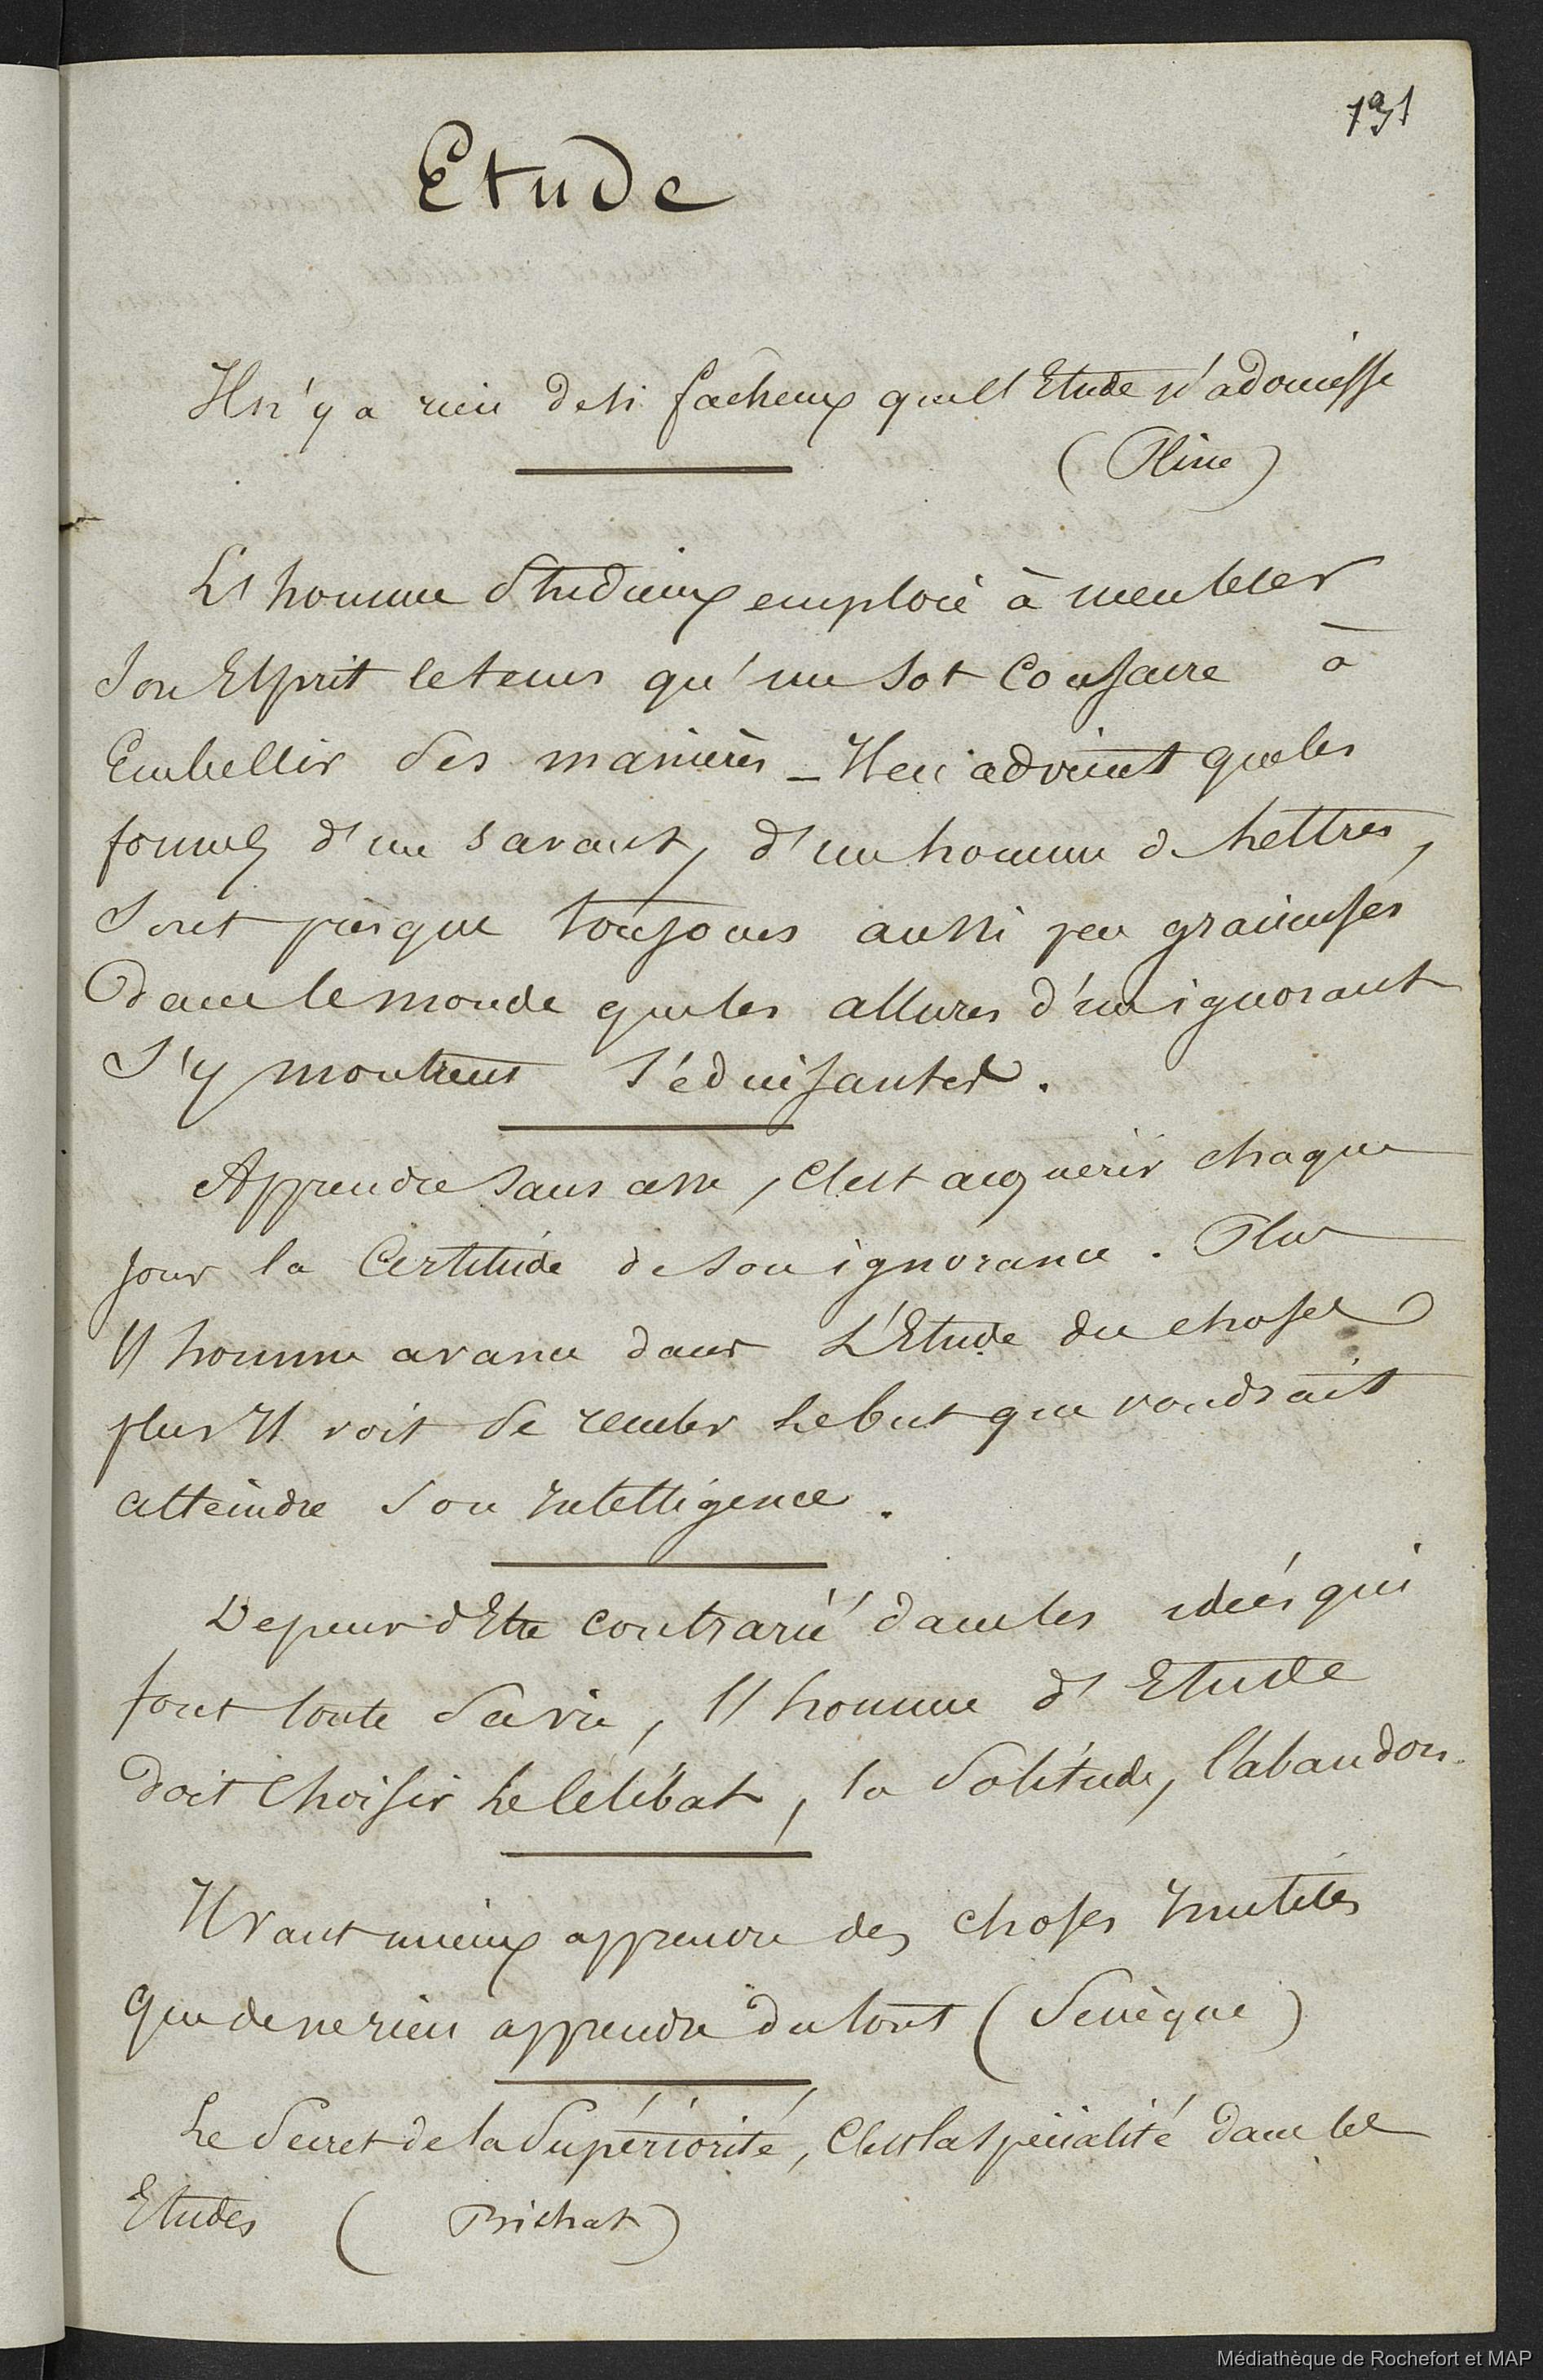 131
Etude
Il n'y a rien de si facheux que l'Etude n'adoucisse
(Pline)
L'homme Studieux emploie à meubler
Son Esprit le tems qu'un Sot Consacre à
Embellir Ses manières _ Il en advient que les
formes d'un Savant, d'un homme de Lettres,
Sont presque toujours aussi peu gracieuses
dans le monde que les allures d'un ignorant
S'y montrent Séduisantes.
Apprendre Sans cesse, C'est acquérir chaque
jour la Certitude de Son ignorance. Plus
l'homme avance dans L'Etude des choses
plus Il voit Se reculer Le but que voudrait
atteindre Son Intelligence.
De peur d'Etre Contrarié dans les idées qui
font toute Sa vie, l'homme d'Etude
doit Choisir Le Célibat, la Solitude, l'abandon.
Il vaut mieux apprendre des choses Inutiles
que de ne rien apprendre du tout (Senèque)
Le Secret de la Supériorité, C'est la Spécialité dans les
Etudes (Bichat)
Médiathèque de Rochefort et MAP